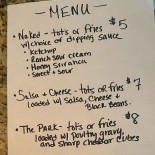 — MENU —
• Naked - tots or fries $5
w/choice of dipping sauce
• Ketchup
• Ranch sour cream
• Honey Sriracha
• Sweet & Sour
• Salsa & Cheese - tots or fries $7
loaded w/ Salsa, Cheese &
Black Beans.
• The PARK - tots or fries $8
loaded w/ poultry gravy,
and Sharp cheddar cubes